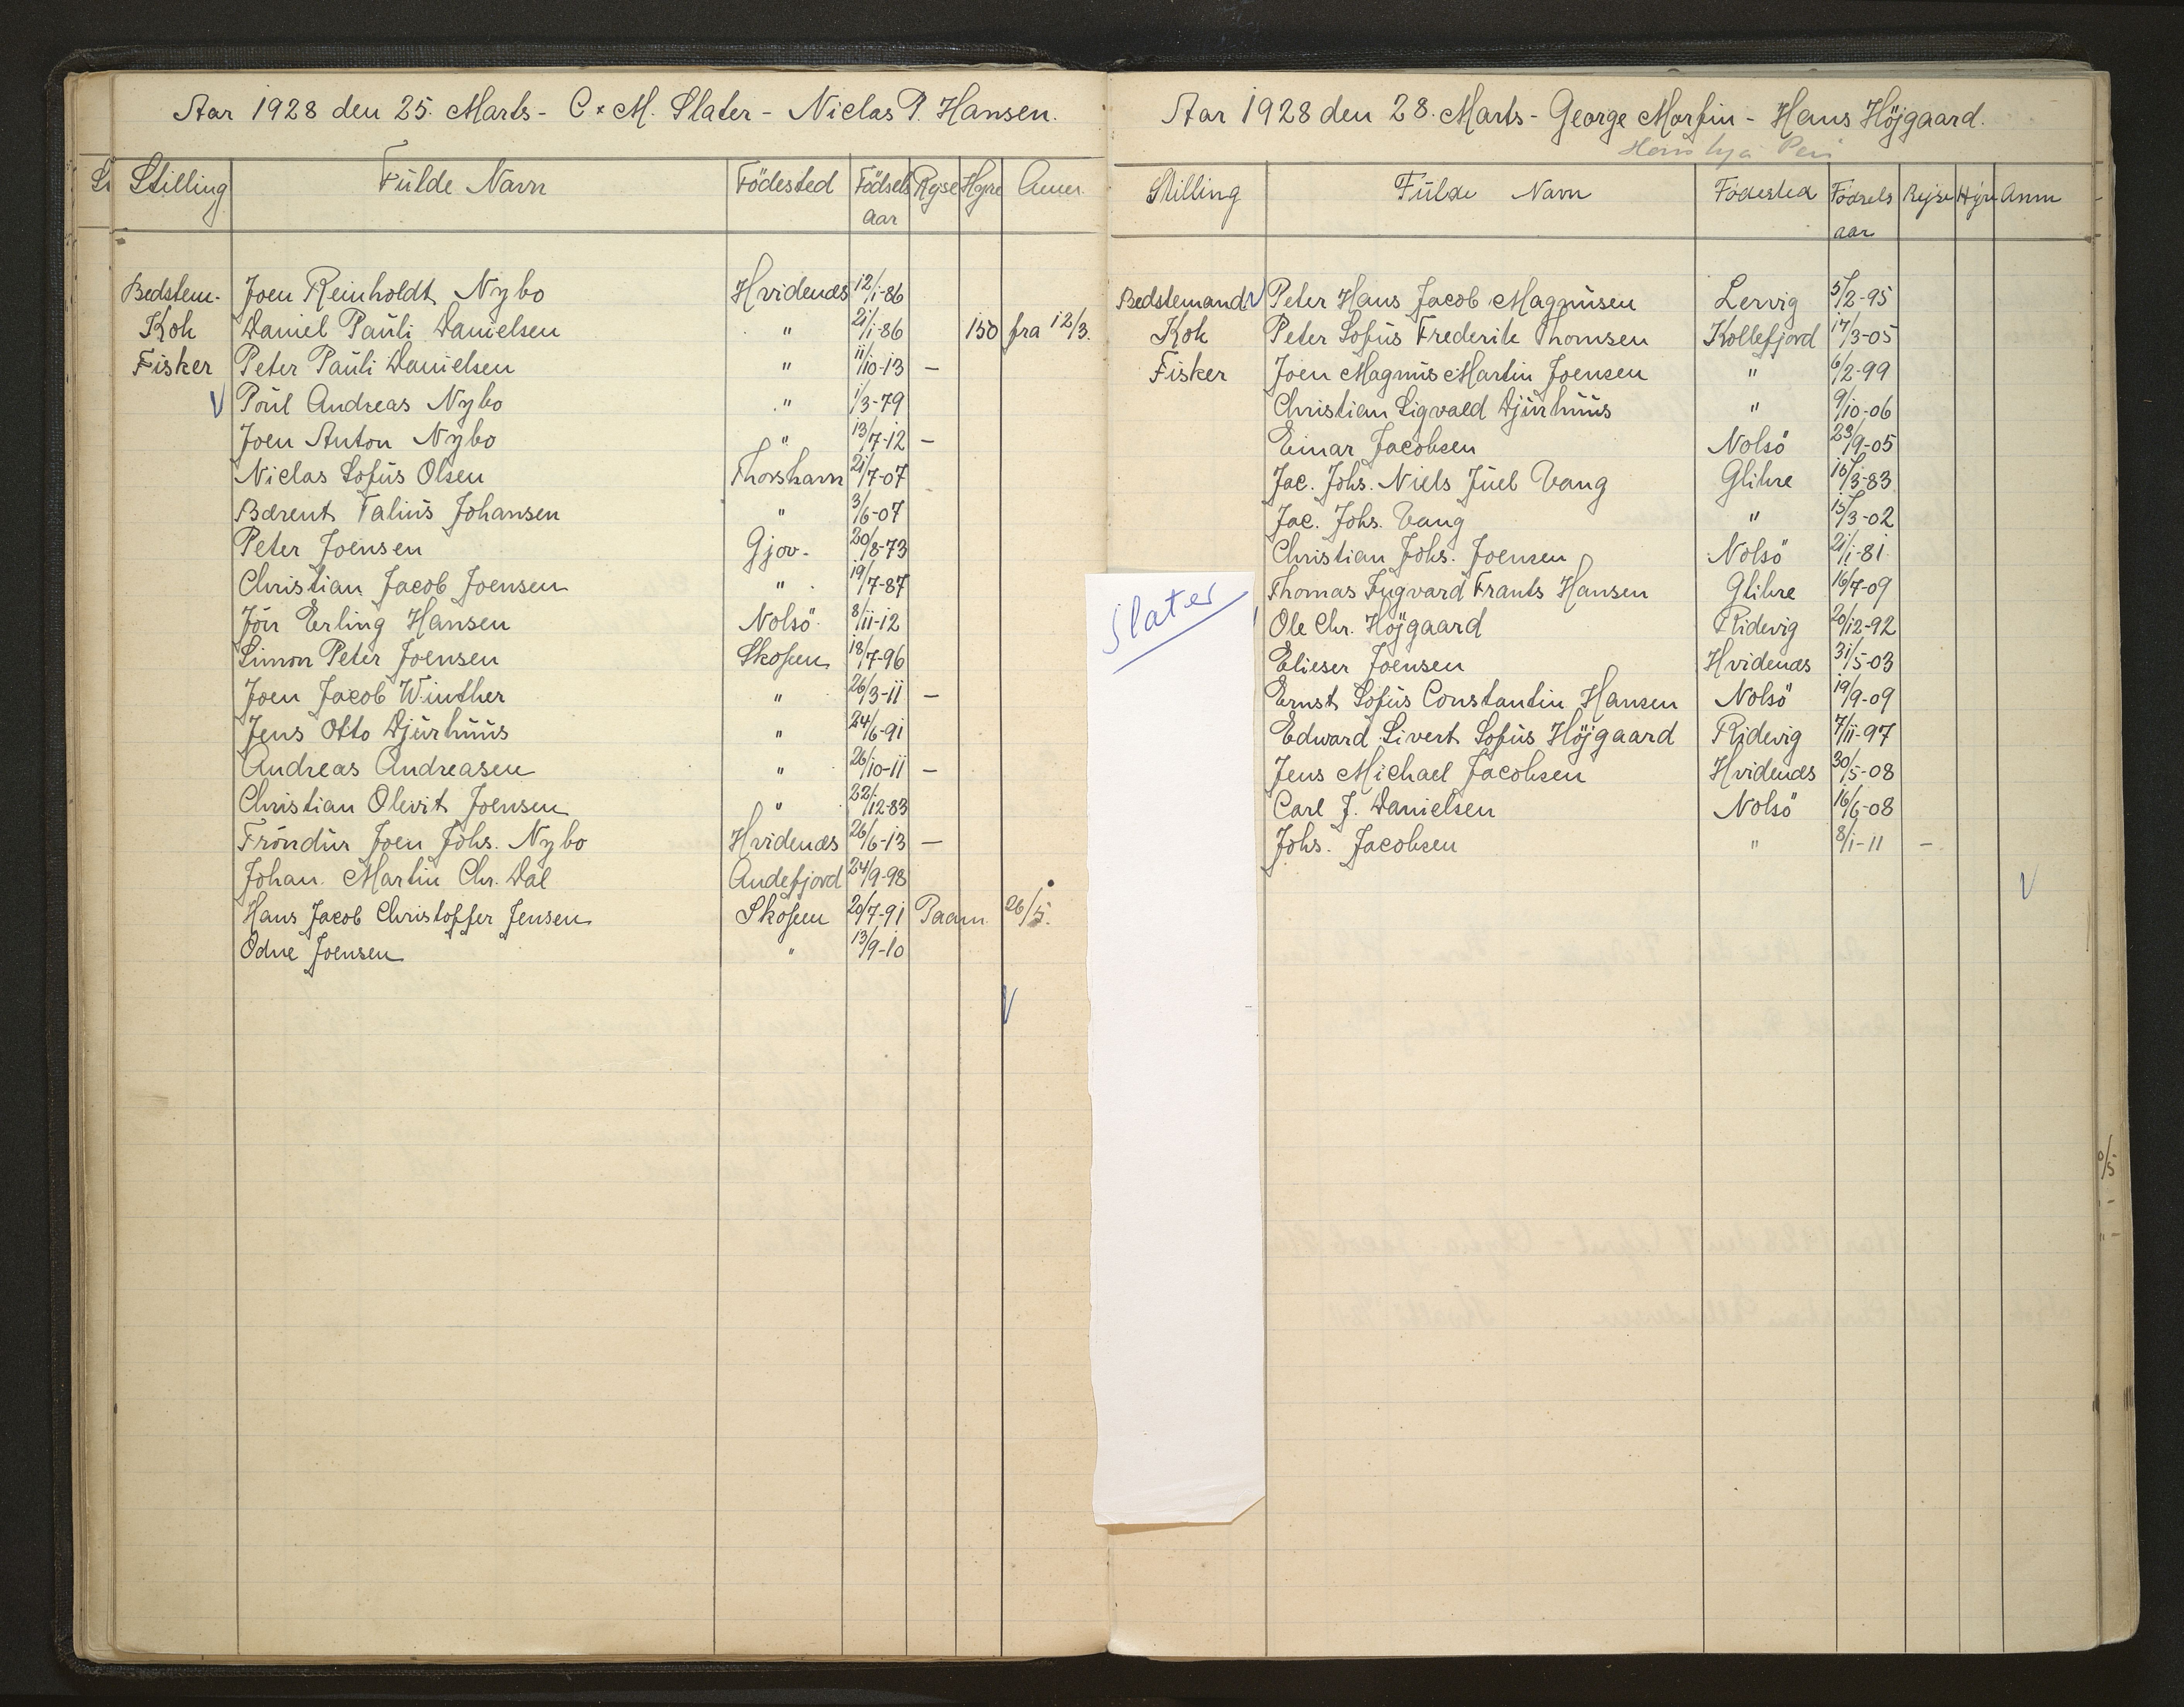 Aar 1928 den 25. Marts - C & M. Slater - Niclas P. Hansen.
Stilling Fulde Navn Födested Födsels aar Rejse Hyre Anm.
Bedstem. Joen Reinholdt Nybo Hvidenæs 12/1-86
Kok Daniel Pauli Danielsen " 21/1-86 150 fra 12/3.
Fisker Peter Pauli Danielsen " 11/10-13 –
V Poul Andreas Nybo " 1/3-79
Joen Anton Nybo " 13/7-12 –
Niclas Sofus Olsen Thorshavn 21/7-07
Bærent Talius Johansen " 3/6-07
Peter Joensen Gjov. 20/8-73
Christian Jacob Joensen " 19/7-87
Jón Erling Hansen Nolsö 8/11-12
Simon Peter Joensen Skopen 18/7-96
Joen Jacob Winther " 26/3-11 –
Jens Otto Djurhuus " 24/6-91
Andreas Andreasen " 26/10-11 –
Christian Olevit Joensen " 22/12-83
Tróndur Joen Johs. Nybo Hvidenæs 26/6-13 –
Johan Martin Chr. Dal Andefjord 24/9-98
Hans Jacob Christoffer Jensen Skopen 20/7-91 Paam. 26/5.
Odne Joensen " 13/9-10
V
Aar 1928 den 28. Marts - George Marfin - Hans Höjgaard.
Stilling Fulde Navn Födested Födsels aar Rejse Hyre Anm
Bedstemand V Peter Hans Jacob Magnusen Lervig 5/2-95
Kok Peter Sofus Frederik Thomsen Kollefjord 17/3-05
Fisker Joen Magnus Martin Joensen " 6/2-99
Christian Sigvald Djurhuus " 9/10-06
Einar Jacobsen Nolsö 23/9-05
Jac. Johs. Niels Juel Vang Glibre 15/3-83
Jac. Johs. Vang " 15/3-02
Christian Johs. Joensen Nolsö 21/1-81
Thomas Ingvard Frants Hansen Glibre 16/7-09
Ole Chr. Höjgaard Ridevig 20/12-92
Elieser Joensen Hvidenæs 31/5-03
Ernst Sofus Constantin Hansen Nolsö 19/9-09
Edward Sivert Sofus Höjgaard Ridevig 7/11-97
Jens Michael Jacobsen Hvidenæs 30/5-08
Carl J. Danielsen Nolsö 16/6-08
Johs. Jacobsen " 8/1-11 –
V
Slater